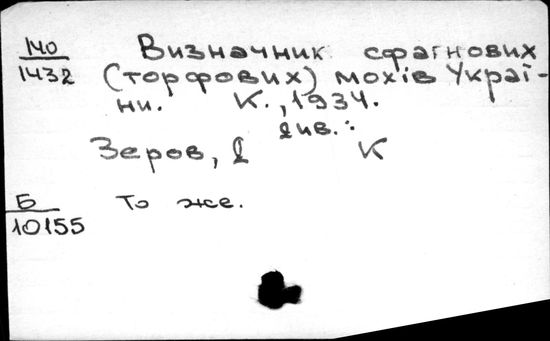 140 Визначник сфагнових
1432 (торфових) мохів Украї-
ни. К., 1934.
див.:
Зеров, Д К
Б То же.
10155